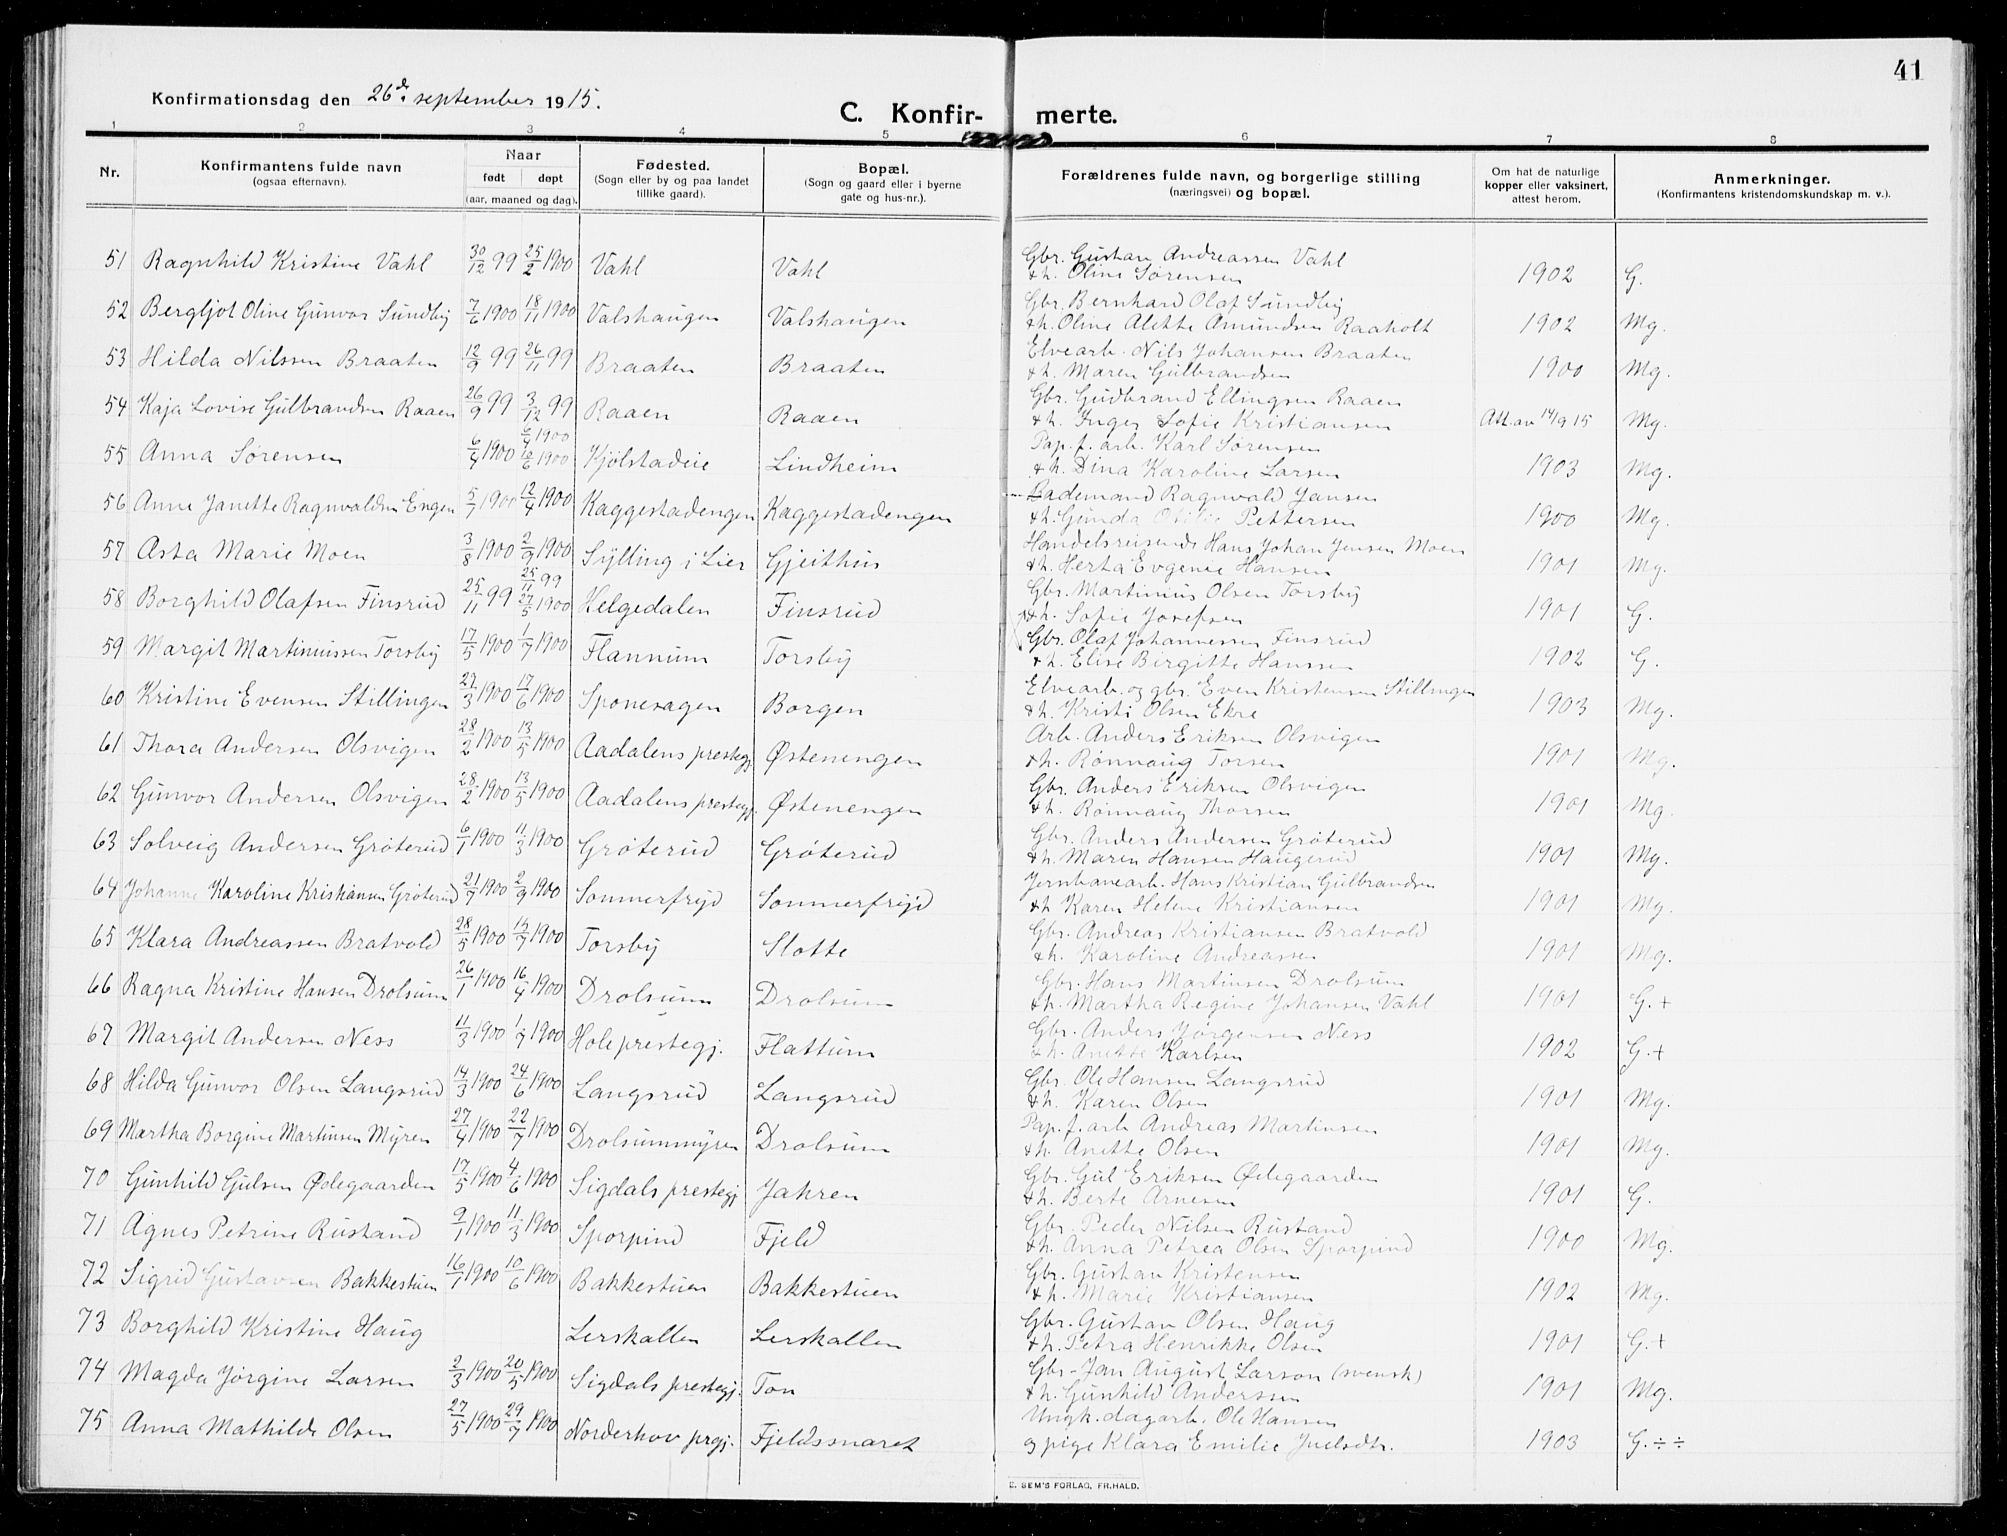 41
Konfirmationsdag den 26de september 1915.
C. Konfir- merte.
1 2 3 4 5 6 7 8
Nr.
Konfirmantens fulde navn
(ogsaa efternavn).
Naar
født døpt
(aar, maaned og dag).
Fødested.
(Sogn eller by og paa landet
tillike gaard).
Bopæl.
(Sogn og gaard eller i byerne
gate og hus-nr.).
Forældrenes fulde navn, og borgerlige stilling
(næringsvei) og bopæl.
Om hat de naturlige
kopper eller vaksinert,
attest herom.
Anmerkninger.
(Konfirmantens kristendomskundskap m. v.).
51 Ragnhild Kristine Vahl 30/12 99 25/2 1900 Vahl Vahl Gbr. Gustav Andreassen Vahl
& h. Oline Sørensen 1902 G.
52 Bergljot Oline Gunvor Sundby 7/6 1900 18/11 1900 Valshaugen Valshaugen Gbr. Bernhard Olaf Sundby
& h. Oline Alette Amundsen Raaholt 1902 Mg.
53 Hilda Nilssen Braaten 12/9 99 26/11 99 Braaten Braaten Elvearb. Nils Johansen Braaten
& h. Maren Gulbrandsen 1900 Mg.
54 Kaja Lovise Gulbrandsen Raaen 26/9 99 3/12 99 Raaen Raaen Gbr. Gudbrand Ellingsen Raaen
& h. Inger Sofie Kristiansen Att. av 14/9 15 Mg.
55 Anna Sørensen 6/4 1900 6/4 1900 10/6 1900 Kjölstadeie Lindheim Pap. f. arb. Karl Sørensen
& h. Dina Karoline Larsen 1903 Mg.
56 Anne Janette Ragnvaldsen Engen 5/1 1900 12/4 1900 Kaggestadengen Kaggestadengen Lademand Ragnvald Jansen
& h. Gunda Otilie Pettersen 1900 Mg.
57 Asta Marie Moen 3/8 1900 2/9 1900 Sylling i Lier Gjeithus Handelsreisende Hans Johan Jensen Moen
& h. Herta Evgenie Hansen 1901 Mg.
58 Borghild Olafsen Finsrud 25/11 99 25/11 99 27/5 1900 Helgedalen Finsrud Gbr. Martinius Olsen Torsby
& h. Sofie Josefsen 1901 G.
59 Margit Martiniussen Torsby 17/5 1900 1/7 1900 Flannum Torsby Gbr. Olaf Johannessen Finsrud
& h. Elise Birgitte Hanssen 1902 G.
60 Kristine Evensen Stillingen 27/3 1900 17/6 1900 Sponesagen Borgen Elvearb. og gbr. Even Kristensen Stillingen
& h. Kristi Olsen Ekre 1903 Mg.
61 Thora Andersen Olsvigen 28/2 1900 13/5 1900 Aadalens prestegj. Østenengen Arb. Anders Eriksen Olsvigen
& h. Rønnaug Torsen 1901 Mg.
62 Gunvor Andersen Olsvigen 28/2 1900 13/5 1900 Aadalens prestegj. Østenengen Gbr. Anders Eriksen Olsvigen
& h. Rønnaug Thorsen 1901 Mg.
63 Solveig Andersen Gröterud 6/1 1900 11/3 1900 Gröterud Gröterud Gbr. Anders Andersen Gröterud
& h. Maren Hansen Haugerud 1901 Mg.
64 Johanne Karoline Kristiansen Gröterud 21/7 1900 2/9 1900 Sommerfryd Sommerfryd Jernbanearb. Hans Kristian Gulbrandsen
& h Karen Helene Kristiansen 1901 Mg.
65 Klara Andreassen Bratvold 28/5 1900 15/7 1900 Torsby Slotte Gbr. Andreas Kristiansen Bratvold
& h. Karoline Andreassen 1901 Mg.
66 Ragna Kristine Hansen Drolsum 26/1 1900 16/4 1900 Drolsum Drolsum Gbr. Hans Martinsen Drolsum
& h. Martha Regine Johansen Vahl 1901 G.+
67 Margit Andersen Ness 11/3 1900 1/7 1900 Hole prestegj. Flattum Gbr. Anders Jørgensen Ness
& h. Anette Karlsen 1902 G.+
68 Hilda Gunvor Olsen Langsrud 14/3 1900 24/6 1900 Langsrud Langsrud Gbr. Ole Hansen Langsrud
& h. Karen Olsen 1901 Mg.
69 Martha Borgine Martinsen Myren 27/4 1900 22/7 1900 Drolsummyren Drolsum Pap. f. arb Andreas Martinsen
& h. Anette Olsen 1901 Mg.
70 Gunhild Gulsen Ødegaarden 17/5 1900 4/6 1900 Sigdals prestegj Jahren Gbr. Gul Eriksen Ødegaarden
& h. Berte Arnesen 1901 G.
71 Agnes Petrine Rustand 9/1 1900 11/3 1900 Sporpind Fjeld Gbr. Peder Nilsen Rustand
& h. Anna Petrea Olsen Sporpind 1900 Mg.
72 Sigrid Gustavsen Bakkestuen 16/1 1900 10/6 1900 Bakkestuen Bakkestuen Gbr. Gustav Kristensen
& h. Marie Kristiansen 1902 Mg.
73 Borghild Kristine Haug Lerskallen Lerskallen Gbr. Gustav Olsen Haug
& h. Petra Henrikke Olsen 1901 G.+
74 Magda Jørgine Larsen 2/3 1900 20/5 1900 Sigdals prestegj. Ton Gbr. Jan August Larson (svensk)
& h. Gunhild Anderssen 1901 Mg.
75 Anna Mathilde Olsen 27/5 1900 29/7 1900 Norderhov prgj. Fjeldssnaret Ungk. dagarb. Ole Hansen
og pige Klara Emilie Juelsdtr. 1903 G. ÷ ÷
E. SEM'S FORLAG, FR.HALD.